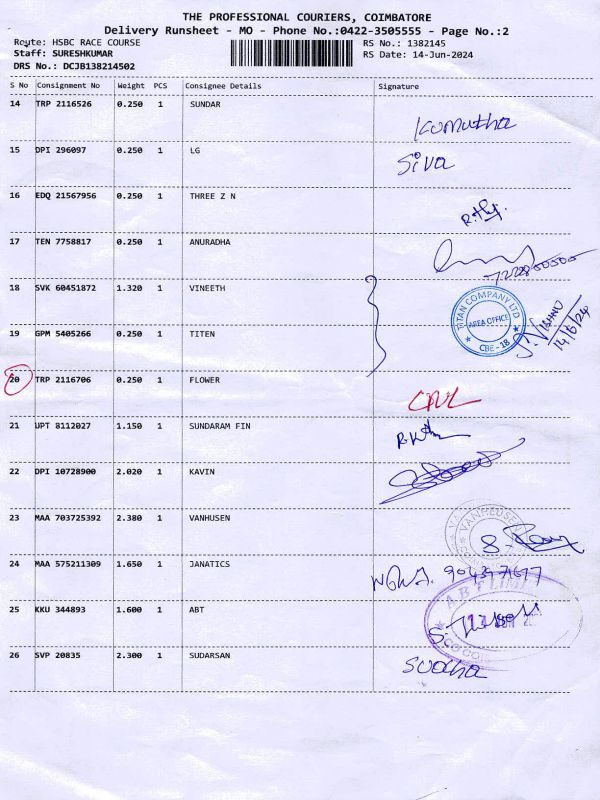 THE PROFESSIONAL COURIERS, COIMBATORE
Delivery Runsheet - MO - Phone No.:0422-3505555 - Page No.:2
Route: HSBC RACE COURSE
RS No.: 1382145
Staff: SURESHKUMAR
RS Date: 14-Jun-2024
DRS No.: DCJB138214502
S No Consignment No Weight PCS Consignee Details Signature
14 TRP 2116526 0.250 1 SUNDAR
Kumutha
15 DPI 296097 0.250 1 LG
Siva
16 EDQ 21567956 0.250 1 THREE Z N
17 TEN 7758817 0.250 1 ANURADHA
18 SVK 60451872 1.320 1 VINEETH
TITAN COMPANY LTD
AREA OFFICE
CBE-18
S. VISHNU
14/6/24
19 GPM 5405266 0.250 1 TITEN
20 TRP 2116706 0.250 1 FLOWER
21 UPT 8112027 1.150 1 SUNDARAM FIN
22 DPI 10728900 2.020 1 KAVIN
23 MAA 703725392 2.380 1 VANHUSEN
VANHEUSEN
24 MAA 575211309 1.650 1 JANATICS
25 KKU 344893 1.600 1 ABT
26 SVP 20835 2.300 1 SUDARSAN
Sudha